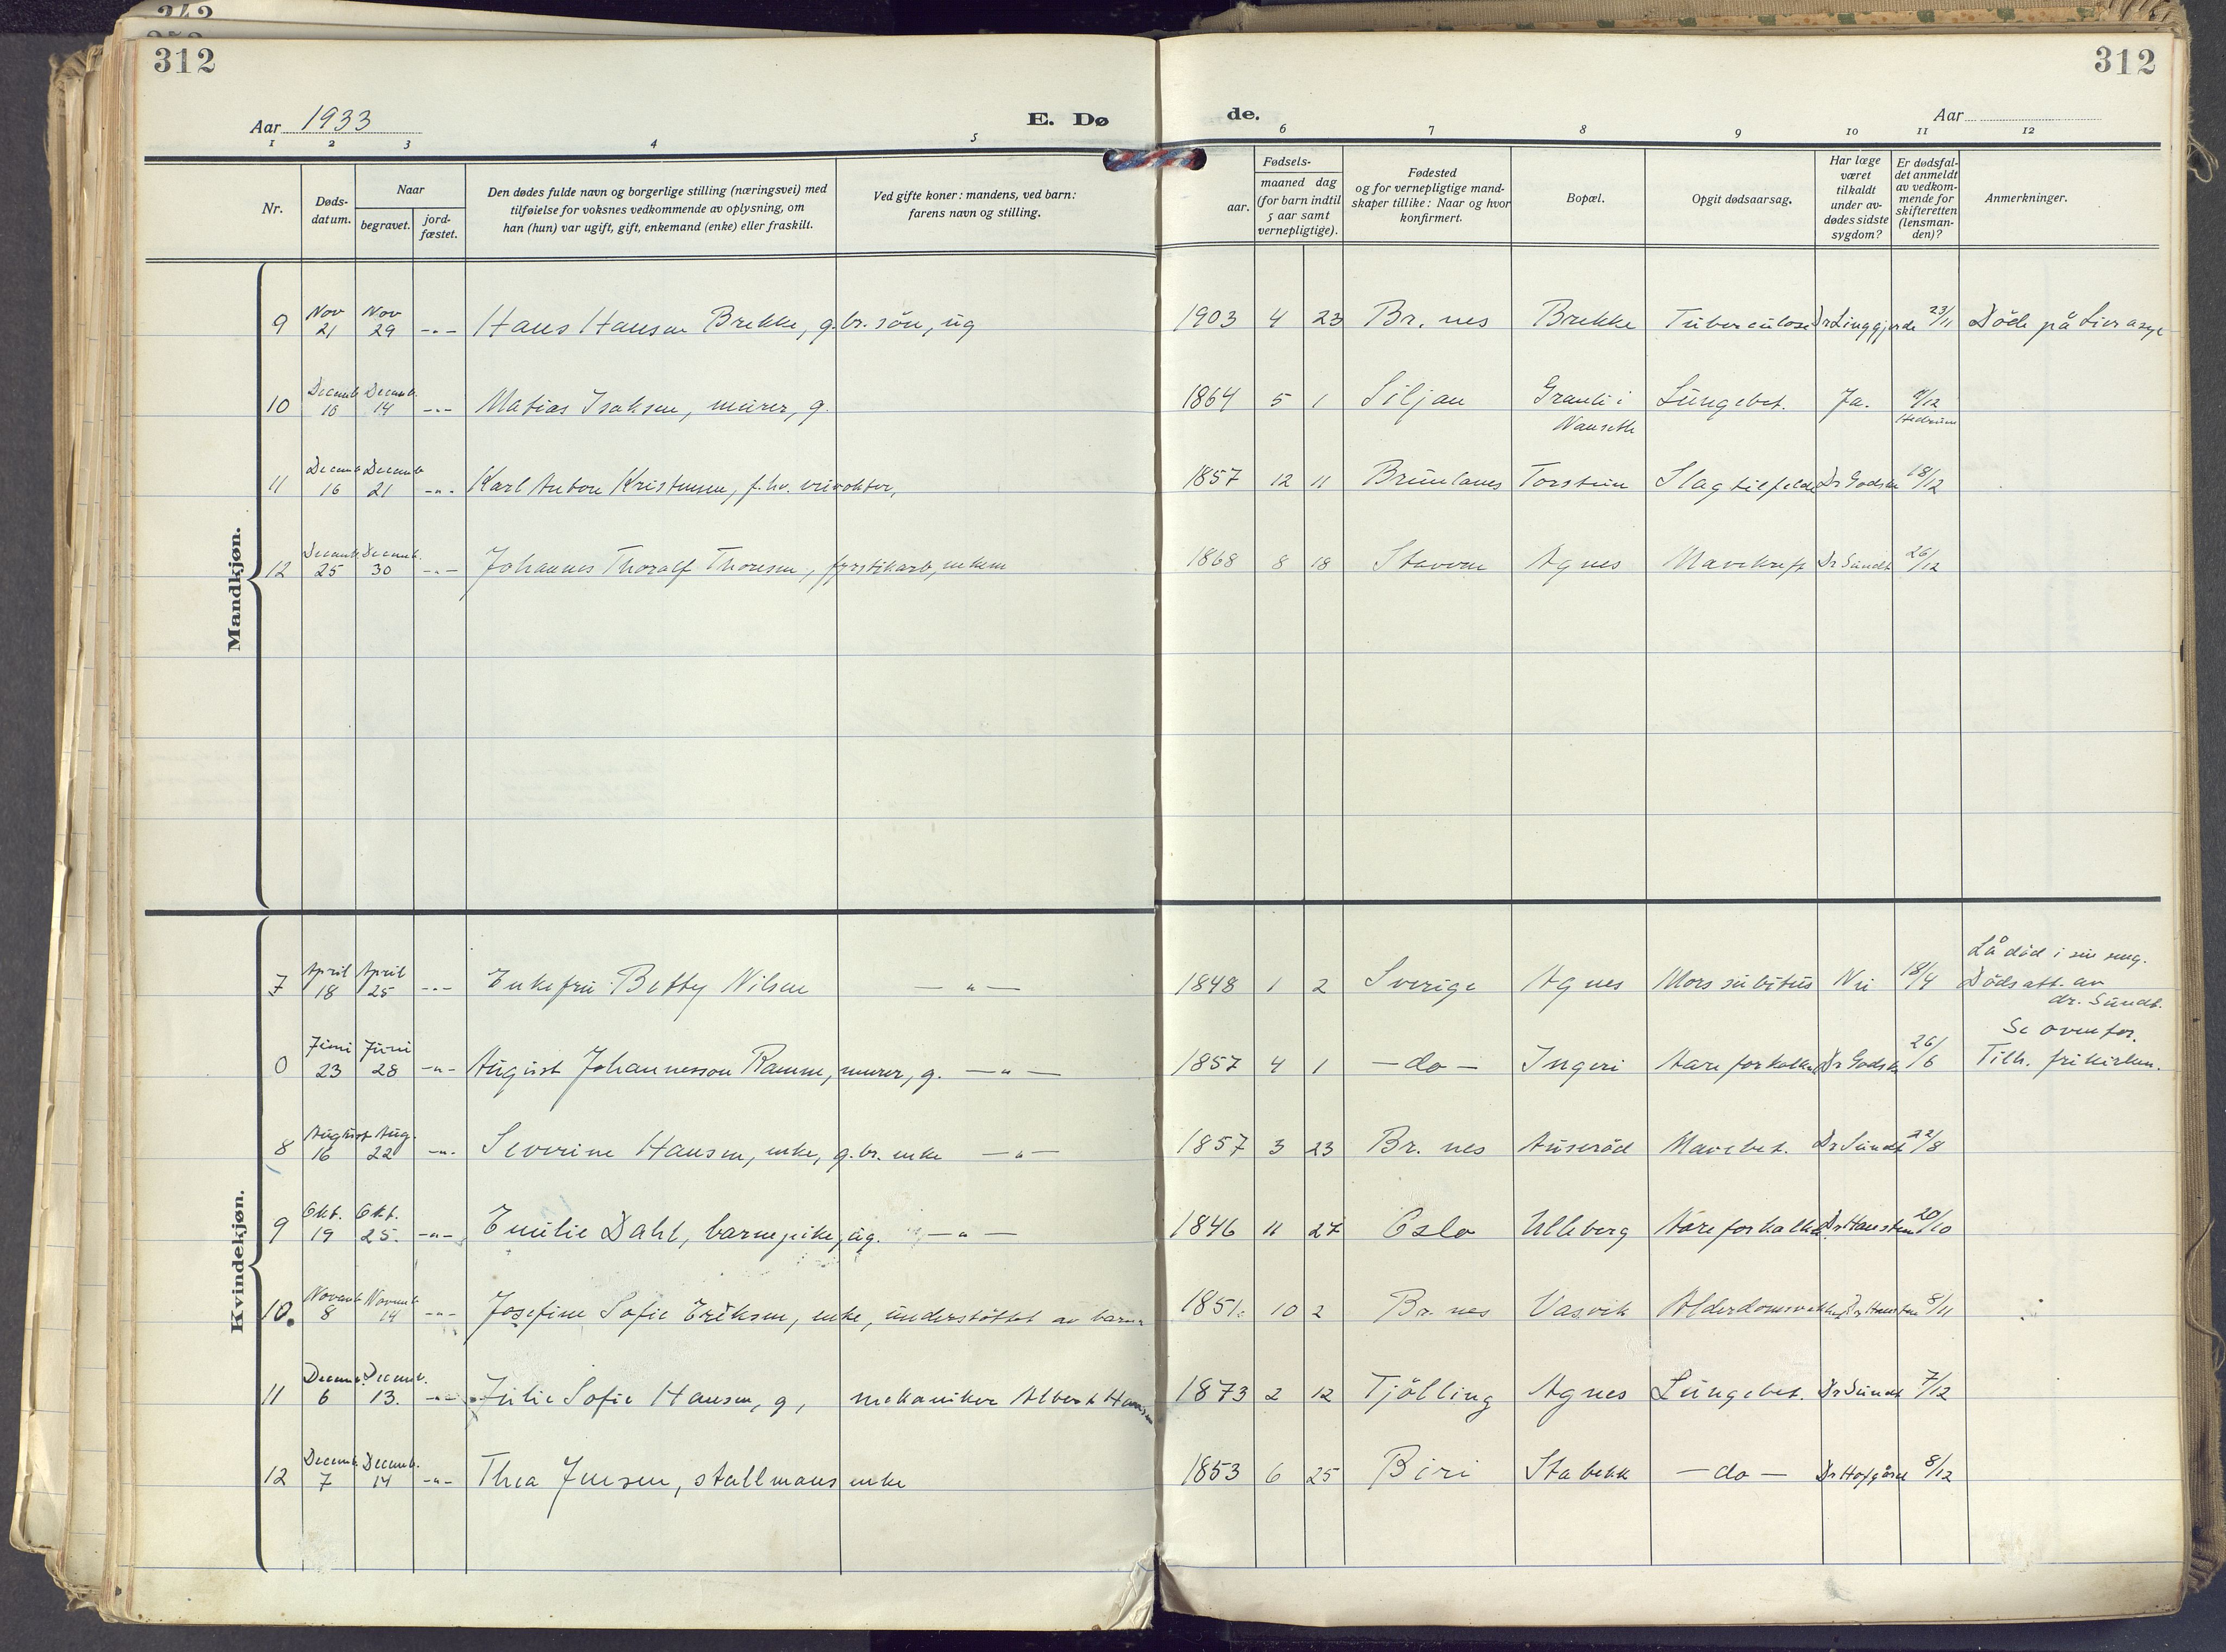 312
312
Aar 1933
E. Dø
de.
Aar
1 2 3 4 5 6 7 8 9 10 11 12
Nr.
Døds-
datum.
Naar
begravet.
jord-
fæstet.
Den dødes fulde navn og borgerlige stilling (næringsvei) med
tilføielse for voksnes vedkommende av oplysning, om
han (hun) var ugift, gift, enkemand (enke) eller fraskilt.
Ved gifte koner: mandens, ved barn:
farens navn og stilling.
aar.
Fødsels-
maaned dag
(for barn indtil
5 aar samt
vernepligtige).
Fødested
og for vernepligtige mand-
skaper tillike: Naar og hvor
konfirmert.
Bopæl.
Opgit dødsaarsag.
Har læge
været
tilkaldt
under av-
dødes sidste
sygdom?
Er dødsfal-
det anmeldt
av vedkom-
mende for
skifteretten
(lensman-
den)?
Anmerkninger.
Mandkjøn.
9 Nov 21 Nov 29 -"- Hans Hansen Brekke, g.br. søn, ug 1903 4 23 Br. nes Brekke Tuberculose Dr Linggjerde 23/11 Døde på Lier asyl
10 Decemb 10 Decemb. 14 -"- Matias Isaksen, murer, g. 1864 5 1 Siljan Granli i Lungebet. Ja. 9/12
Nanseth Hedrum
11 Decemb 16 Decemb 21 -"- Karl Anton Kristensen, f.hv. 1857 12 11 Brunlanes Torstein Slagtilfelde Dr Godsk 18/12
12 Decemb 25 Decemb. 30 -"- Johannes Thoralf Thoresen, fyrstikarb, enkem 1868 8 18 Stavern Agnes Mavekreft Dr Sundt 26/12
Kvindekjøn.
Lå død i sin seng.
7 April 18 April 25 -"- Enkefru Betty Nilsen -"- 1848 1 2 Sverige Agnes Mors subitus Nei 18/4 Dødsatt. av
dr. Sundt.
Se ovenfor.
0 Juni 23 Juni 28 -"- August Johannesson Ramm, murer, g. -"- 1857 4 1 -do- Ingeri Aareforkalkn Dr Godsk 26/6 Tilh. frikirken.
8 August 16 Aug. 22 -"- Severine Hansen, enke, g.br. enke -"- 1857 3 23 Br. nes Auserød Mavebet. Dr Sundt 22/8
9 Okt. 19 Okt. 25. -"- Emilie Dahl, barnepike, ug. -"- 1846 11 27 Oslo Ulleberg Åreforkalkn Dr Hansteen 20/10
10. Novemb 8 Novemb 14 -"- Josefine Sofie Eriksen, enke, understøttet av barn 1851. 10 2 Br. nes Vasvik Alderdomsvekkelse Dr Hansteen 8/11
11 Decemb. 6 Decemb. 13. -"- Julie Sofie Hansen, g, mekaniker Albert Hansen 1873 2 12 Tjølling Agnes Lungebet. Dr Sundt 7/12
12 Decemb. 7 Decemb. 14 -"- Thea Jensen, stallmans enke 1853 6 25 Biri Stabekk -do- Dr Hofgård 8/12